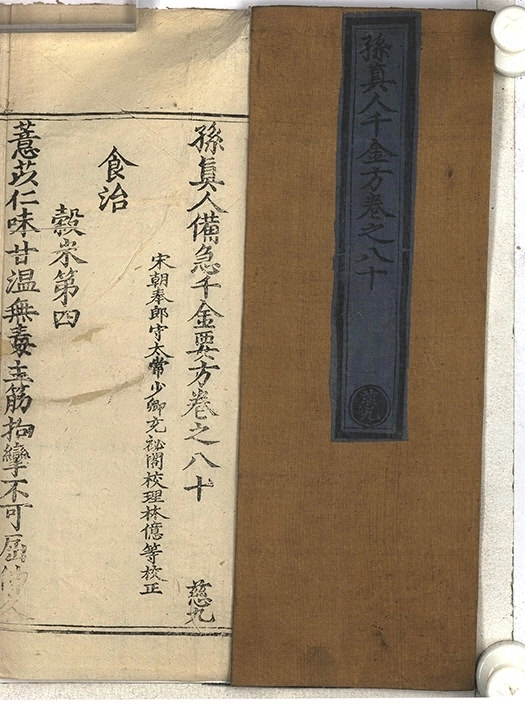 孫真人千金方卷之八十
孫眞人備急千金要方卷之八十 慈九
宋朝奉郎守太常少卿充祕閣校理林億等校正
食治
穀米第四
薏苡仁味甘溫無毒主筋拘攣不可屈伸久